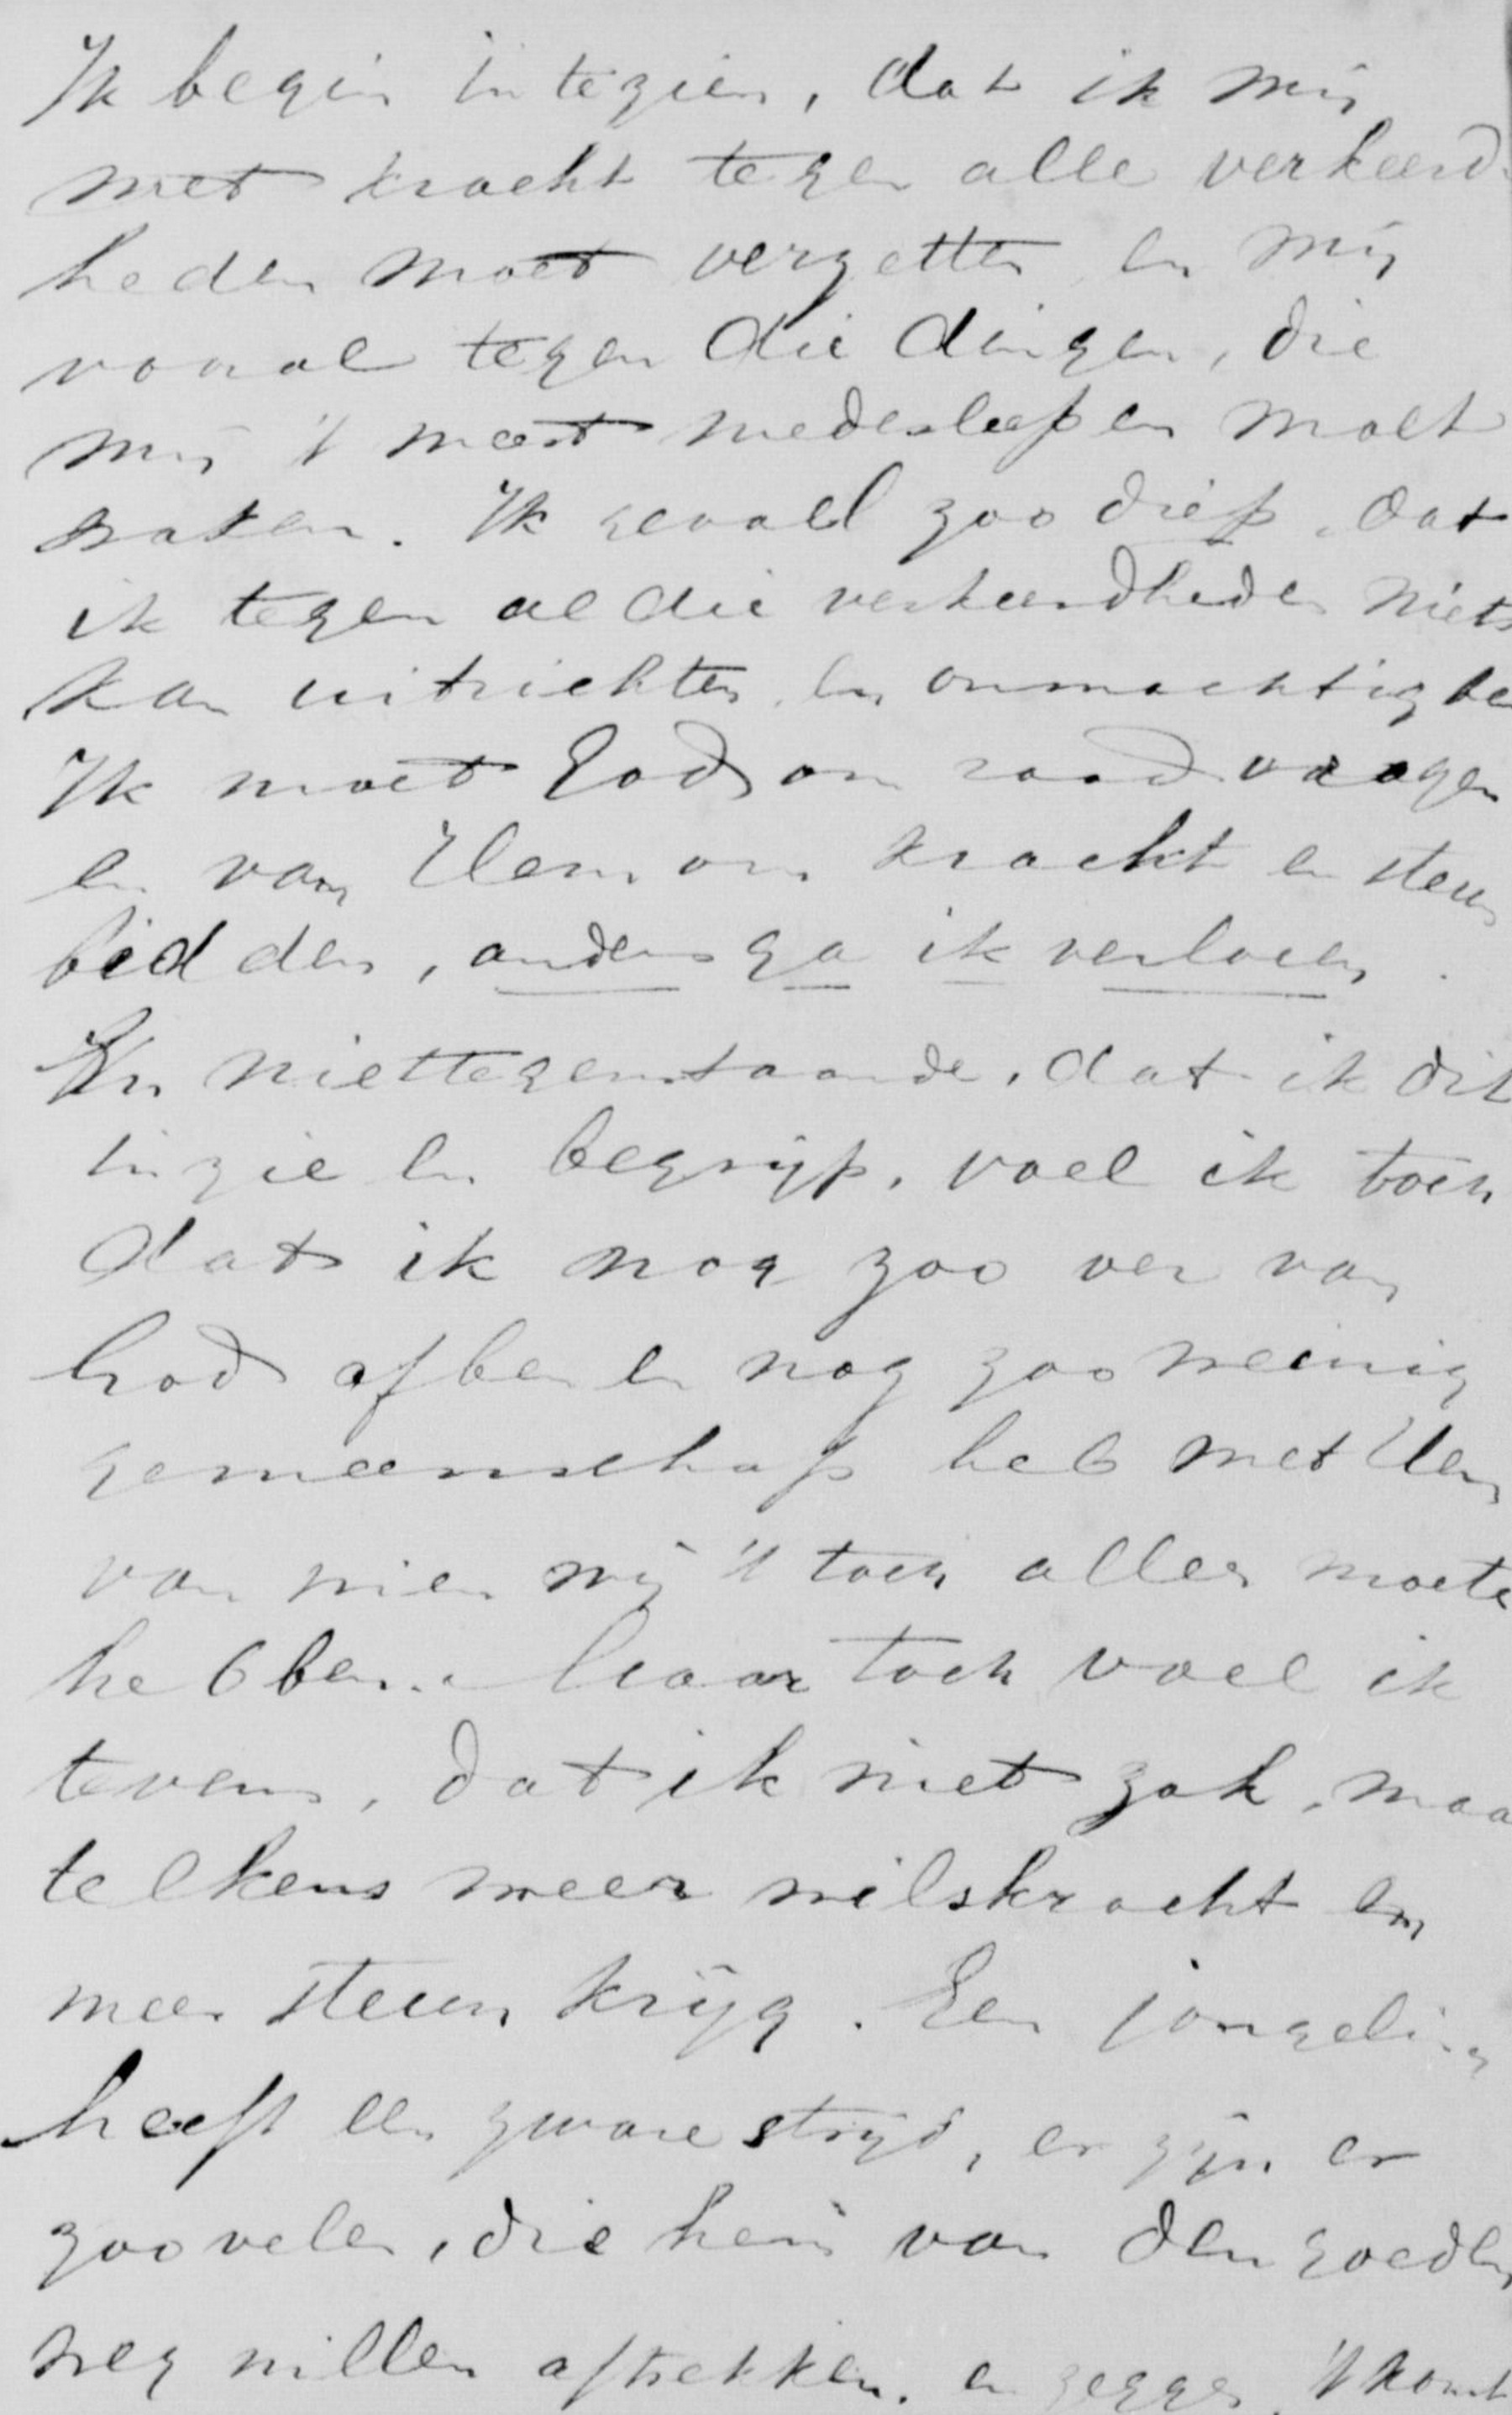 Ik begin in te zien, dat ik mij
met kracht tegen alle verkeerd-
heden moet verzetten en mij
vooral tegen die dingen, die
mij 't meest medesleepen moet
waken. Ik gevoel zoo diep, dat
ik tegen al die verkeerdheden niets
kan uitrichten en onmachtig ben
Ik moet God om raad vragen
en van Hem om kracht en steun
bidden, anders ga ik verloren.
En niettegenstaande, dat ik dit
inzie en begrijp, voel ik toch
dat ik nog zoo ver van
God af ben en nog zoo weinig
gemeenschap heb met Hem
van wien wij 't toch alles moeten
hebben. Maar toch voel ik
tevens, dat ik niet zak, maar
telkens meer wilskracht en
meer steun krijg. Een jongeling
heeft een zware strijd, er zijn er
zoovelen, die hem van den goeden
weg willen aftrekken. en zeggen, 't komt